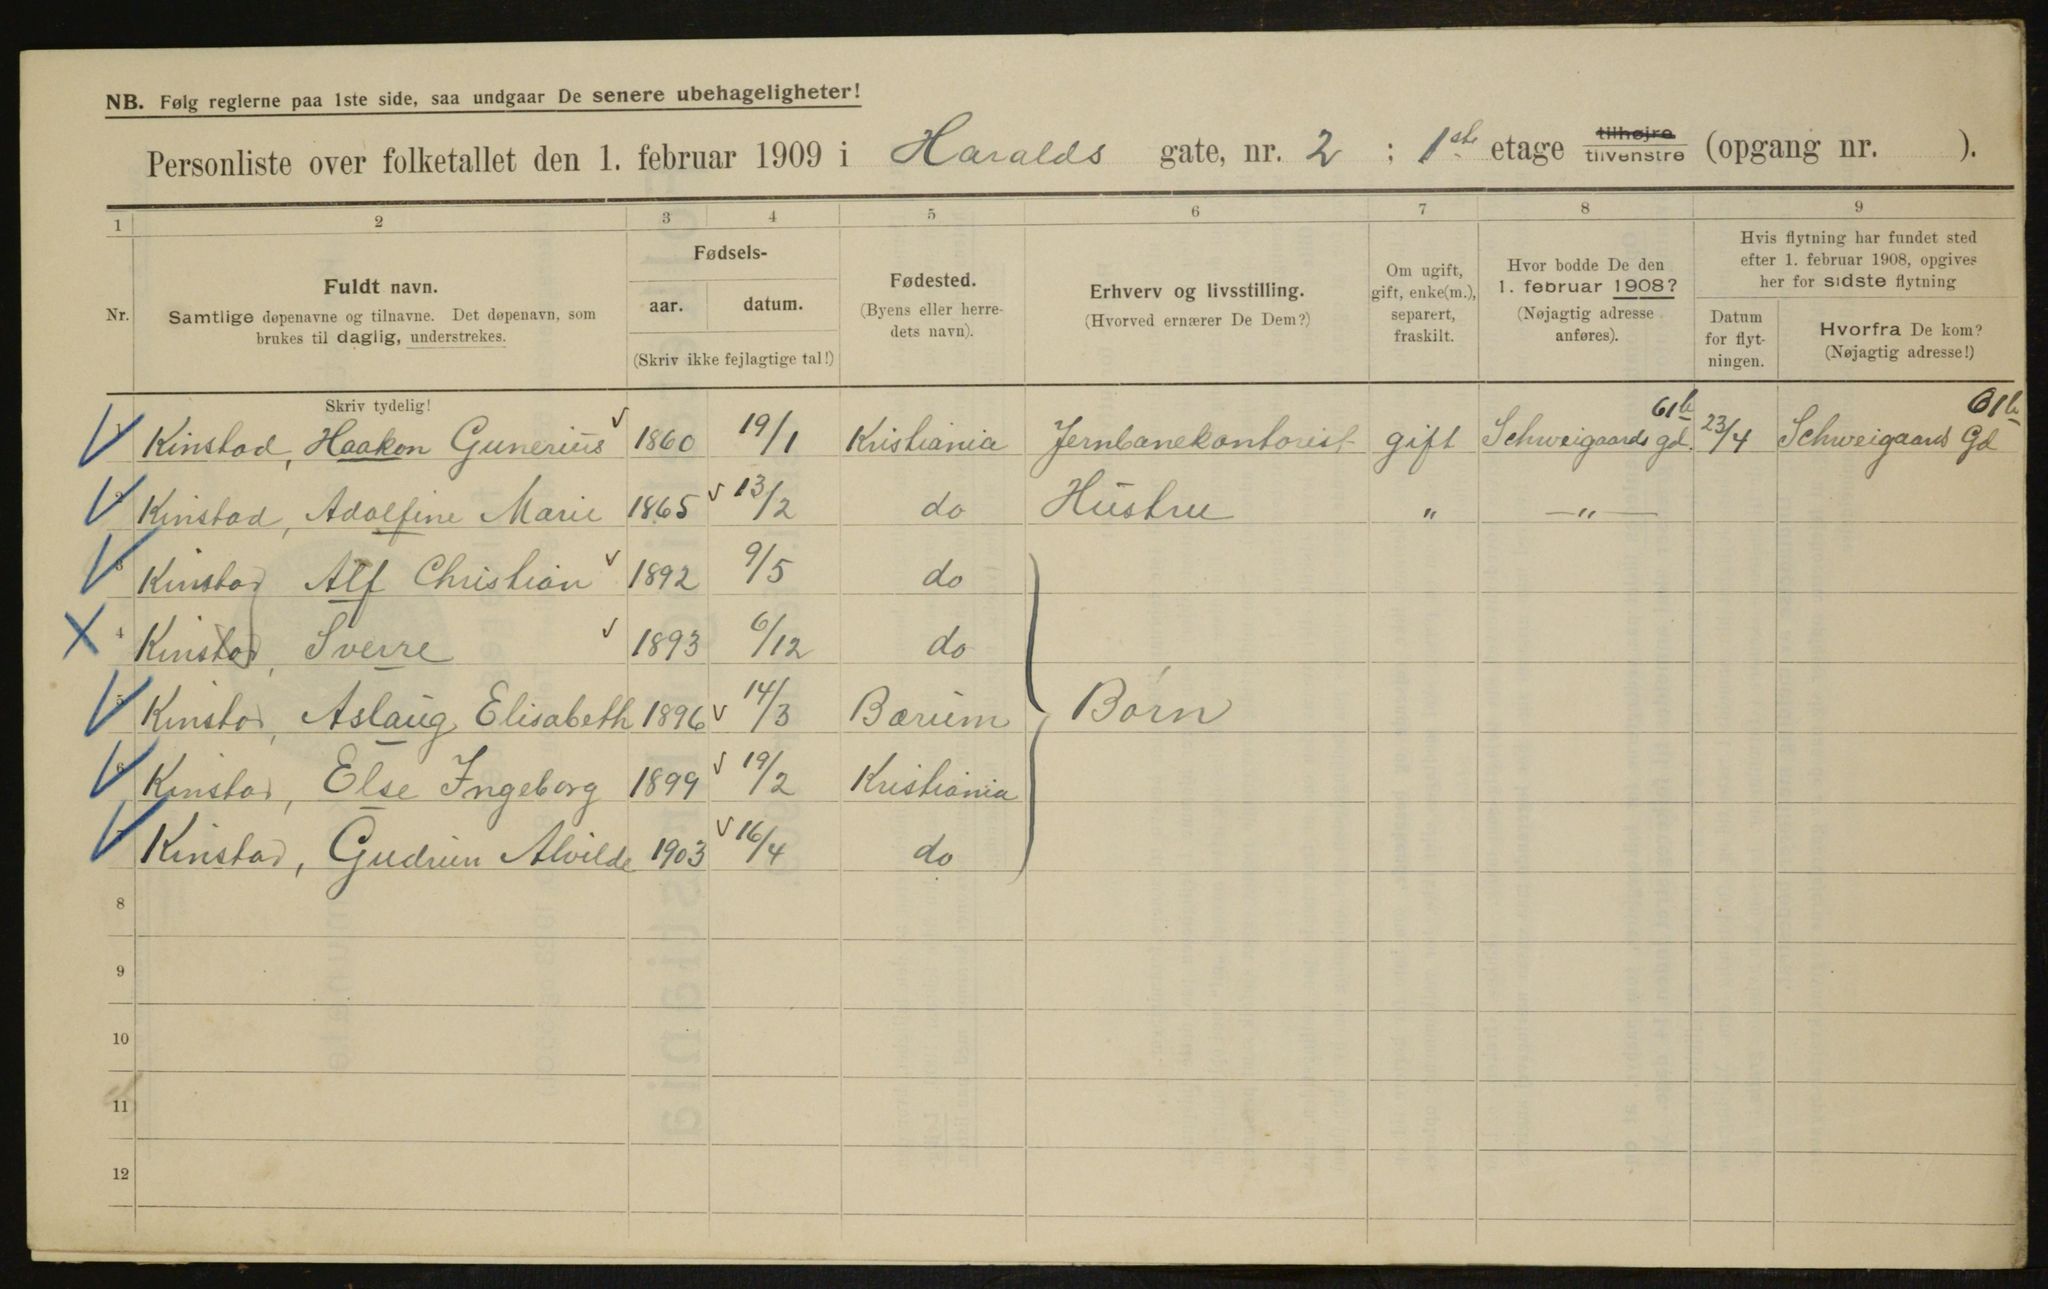 NB. Følg reglerne paa 1ste side, saa undgaar De senere ubehageligheter!
Personliste over folketallet den 1. februar 1909 i Haralds gate, nr. 2 ; 1ste etage tilhøjre tilvenstre (opgang nr. ).
1 2 3 4 5 6 7 8 9
Nr.
Fuldt navn.
Samtlige døpenavne og tilnavne. Det døpenavn, som
brukes til daglig, understrekes.
Skriv tydelig!
Fødsels-
aar. datum.
(Skriv ikke fejlagtige tal!)
Fødested.
(Byens eller herre-
dets navn).
Erhverv og livsstilling.
(Hvorved ernærer De Dem?)
Om ugift,
gift, enke(m.),
separert,
fraskilt.
Hvor bodde De den
1. februar 1908?
(Nøjagtig adresse
anføres).
Hvis flytning har fundet sted
efter 1. februar 1908, opgives
her for sidste flytning
Datum
for flyt-
ningen.
Hvorfra De kom?
(Nøjagtig adresse!)
Kinstad, Haakon Gunerius 1860 19/1 Kristiania Jernbanekontorist gift Schweigaards gd. 61b 23/4 Schweigaards Gd 61b
2 Kinstad, Adolfine Marie 1865 13/2 do Hustru " —"—
3 Kinstad Alf Christian 1892 9/5 do
4 Kinstad, Sverre 1893 6/12 do
5 Kinstad, Aslaug Elisabeth 1896 14/3 Bærum Børn
6 Kinstad, Else Ingeborg 1899 19/2 Kristiania
Kinstad, Gudrun Alvilde 1903 16/4 do
8
9
10
11
12